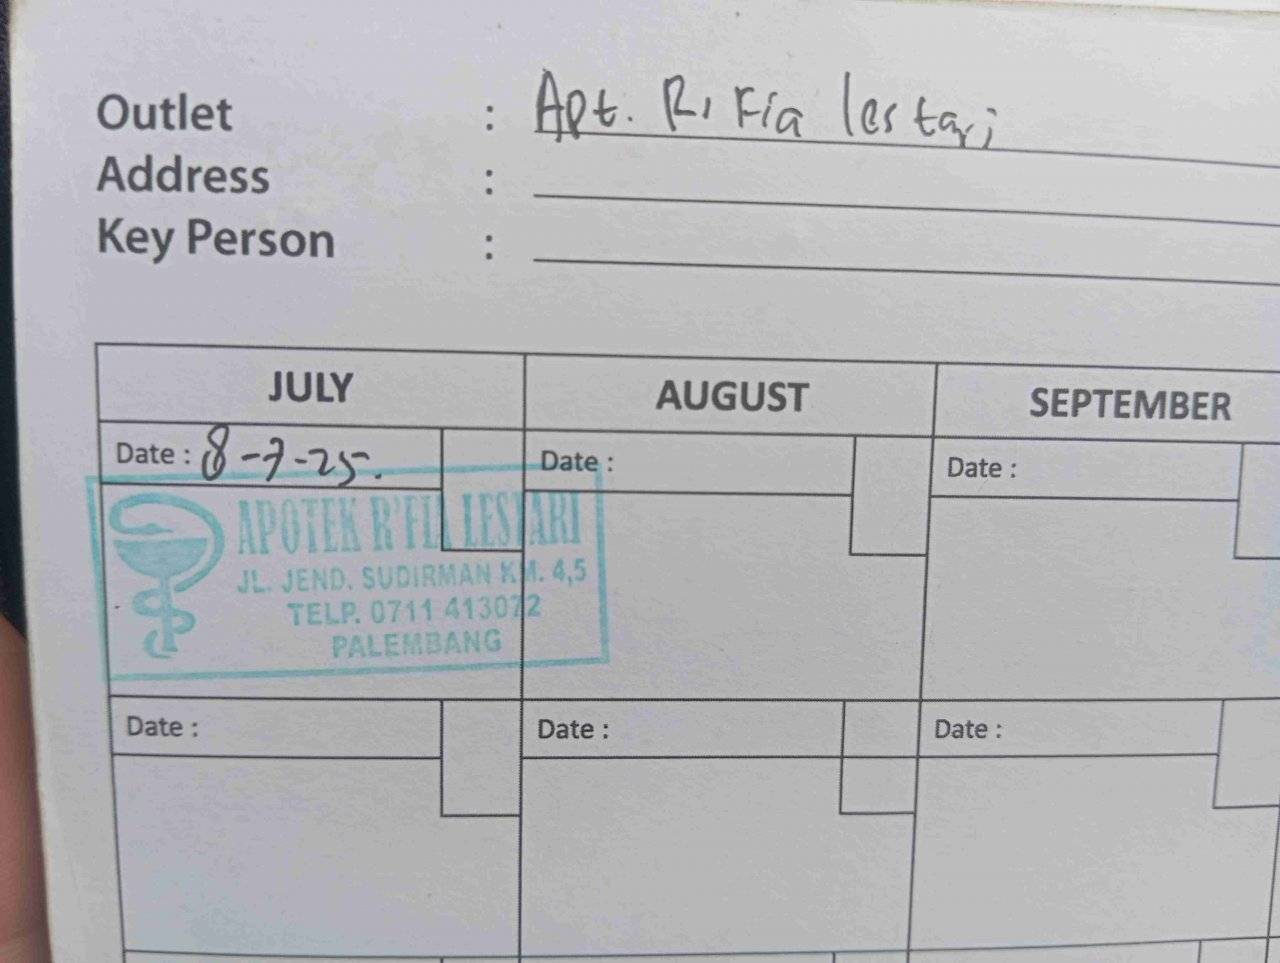 Outlet : Apt. R, Fia lestari
Address :
Key Person :
JULY AUGUST SEPTEMBER
Date : 8-7-25. Date : Date :
APOTEK R'FIA LESTARI
JL. JEND. SUDIRMAN KM. 4,5
TELP. 0711 413072
PALEMBANG
Date : Date : Date :